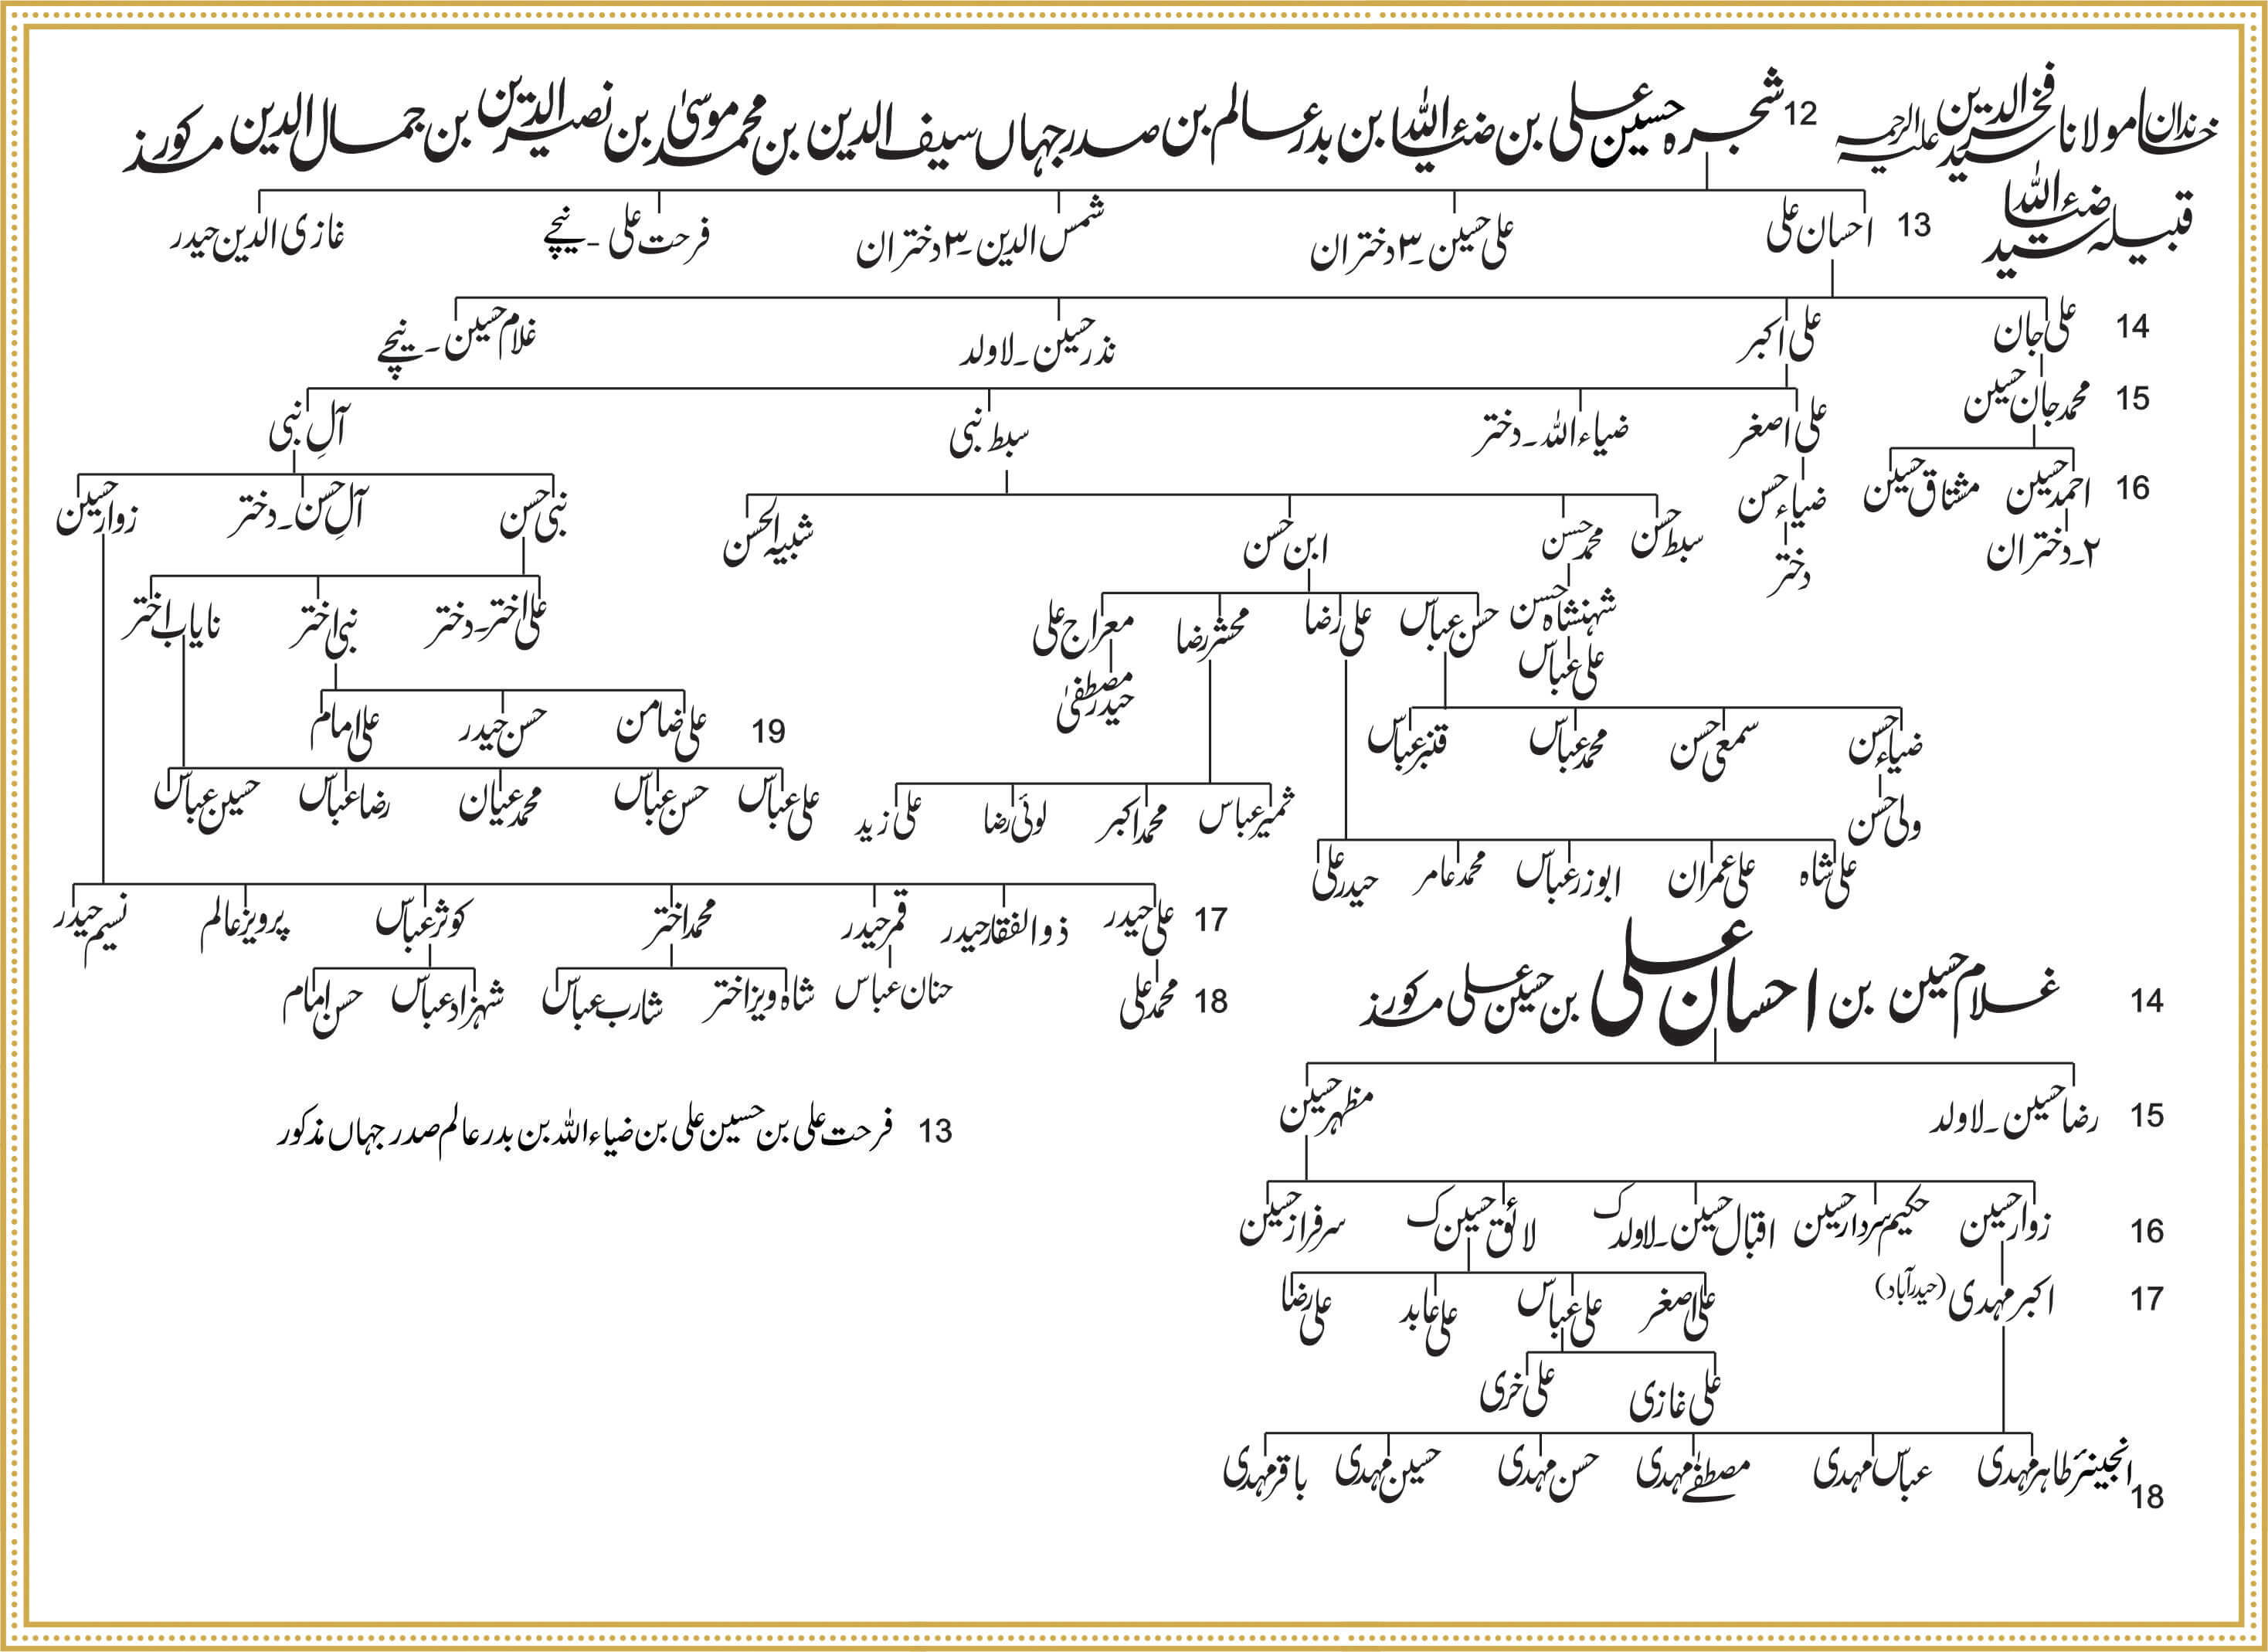 خاندان مولانا سید فخرالدین علیہ الرحمہ 12 شجرہ حسین علی بن ضیاءاللہ بن بدر عالم بن صدر جہاں سیف الدین بن محمد موسیٰ بن نصیر الدین بن جمال الدین مذکور
قبیلہ سید ضیاءاللہ
13 احسان علی علی حسین۔۳ دختران شمس الدین۔۳ دختران فرحت علی ۔ نیچے غازی الدین حیدر
14 علی جان علی اکبر نذر حسین۔لاولد غلام حسین ۔ نیچے
15 محمد جان حسین علی اصغر ضیاءاللہ۔دختر سبط نبی آلِ نبی
16 احمد حسین مشتاق حسین ضیاء حسن سبط حسن محمد حسن ابن حسن شبیہ الحسن نبی حسن آلِ حسن۔دختر زوار حسین
۲۔دختران دختر
شہنشاہ حسن حسن عباس علی رضا محشر رضا معراج علی علی اختر۔دختر نبی اختر نایاب اختر
علی عباس حیدر مصطفیٰ
ضیاء حسن سمعی حسن محمد عباس قنبر عباس 19 علی ضامن حسن حیدر علی امام
ولی حسن ثمیر عباس محمد اکبر لوئی رضا علی زید علی عباس حسن عباس محمد عیان رضا عباس حسین عباس
علی شاہ علی عمران ابوزر عباس محمد عامر حیدر علی
17 علی حیدر ذوالفقار حیدر قمر حیدر محمد اختر کوثر عباس پرویز عالم نسیم حیدر
18 محمد علی حنان عباس شاہ ویز اختر شارب عباس شہزاد عباس حسن امام
14 غلام حسین بن احسان علی بن حسین علی مذکور
15 رضا حسین۔لاولد مظہر حسین
13 فرحت علی بن حسین علی بن ضیاءاللہ بن بدر عالم صدر جہاں مذکور
16 زوار حسین حکیم سردار حسین اقبال حسین۔لاولد ک لائق حسین ک سرفراز حسین
17 اکبر مہدی (حیدرآباد) علی اصغر علی عباس علی عابد علی رضا
علی غازی علی خری
18 انجینئر طاہر مہدی عباس مہدی مصطفےٰ مہدی حسن مہدی حسین مہدی باقر مہدی